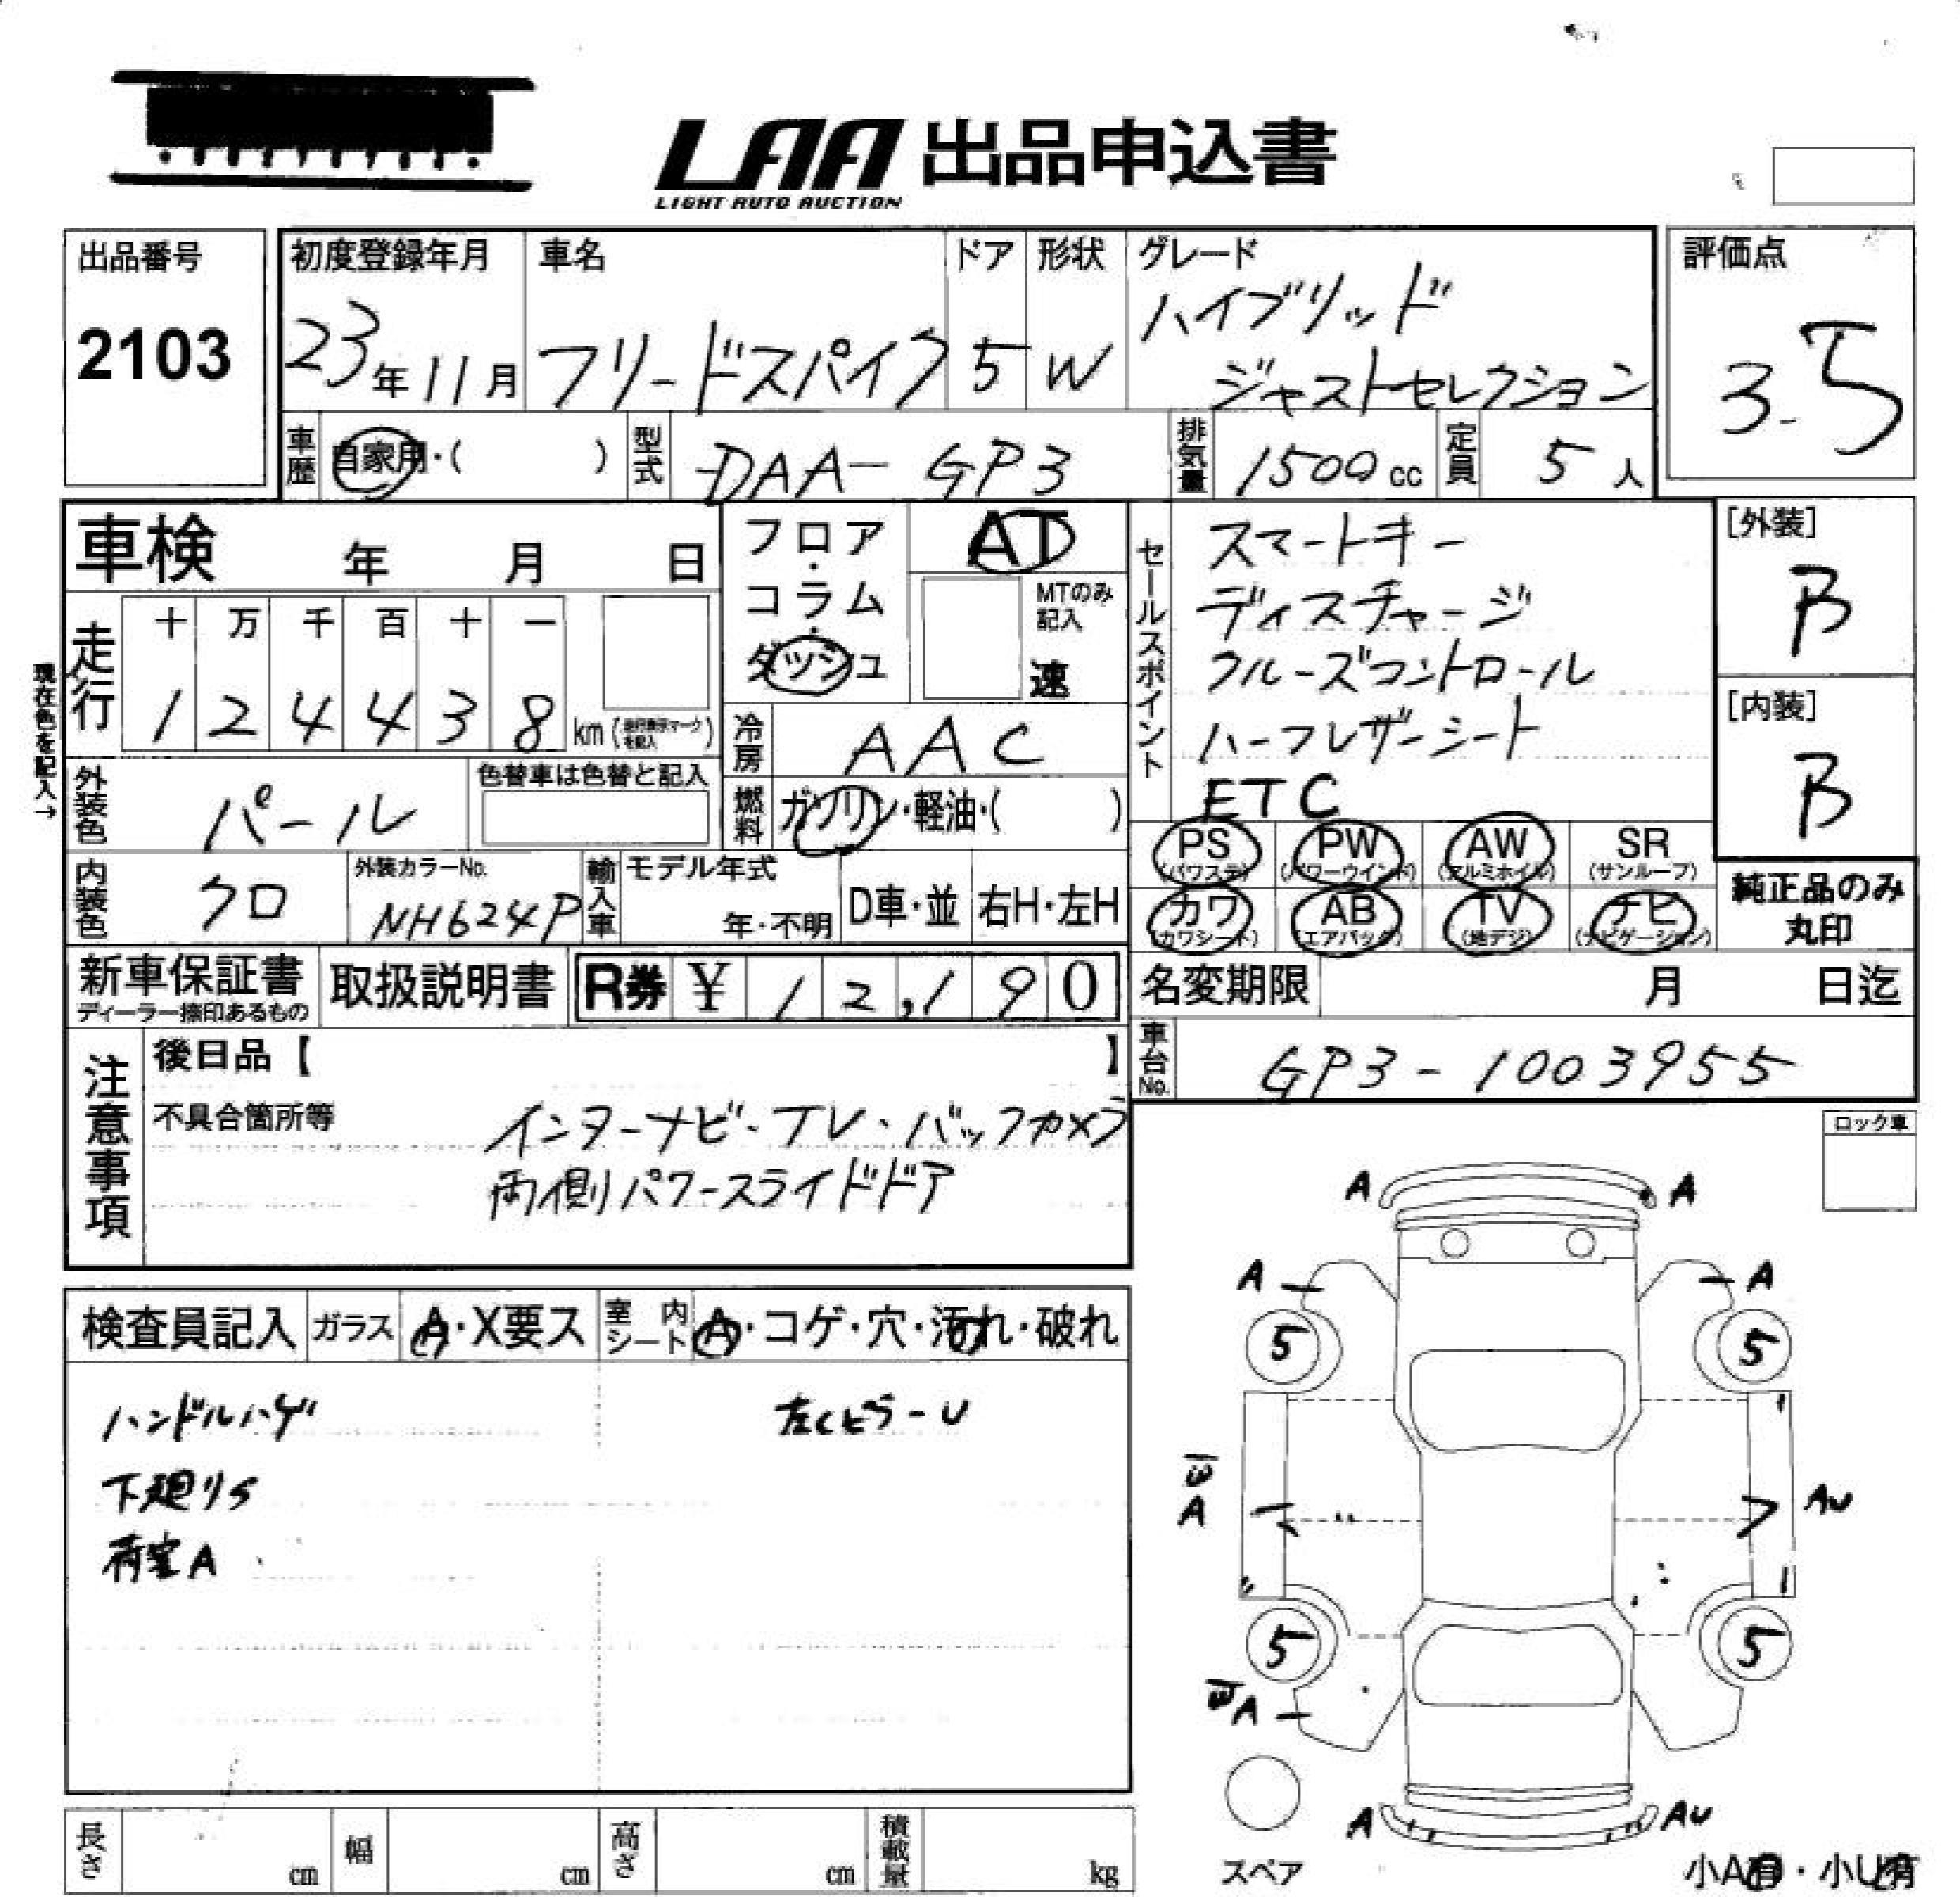 LAA 出品申込書
LIGHT AUTO AUCTION
出品番号
2103
初度登録年月
23年11月
車名
フリードスパイク
ドア
5
形状
W
グレード
ハイブリッド
ジャストセレクション
評価点
3.5
車歴
自家用・( )
型式
DAA-GP3
排気量
1500cc
定員
5人
車検 年 月 日
フロア・コラム・ダッシュ
AT
MTのみ記入
速
セールスポイント
スマートキー
ディスチャージ
クルーズコントロール
ハーフレザーシート
ETC
[外装]
B
[内装]
B
現在色を記入→
走行
十 万 千 百 十 一
1 2 4 4 3 8 km (走行表示マークを記入)
冷房
AAC
外装色
パール
色替車は色替と記入
燃料
ガソリン・軽油・( )
PS (パワステ)
PW (パワーウインド)
AW (アルミホイル)
SR (サンルーフ)
カワ (カワシート)
AB (エアバッグ)
TV (地デジ)
ナビ (ナビゲーション)
純正品のみ
丸印
内装色
クロ
外装カラーNo.
NH624P
輸入車
モデル年式
年・不明
D車・並
右H・左H
新車保証書
ディーラー捺印あるもの
取扱説明書
R券 ¥ 12,190
名変期限 月 日迄
車台No.
GP3-1003955
注意事項
後日品【 】
不具合箇所等
インターナビ・TV・バックカメラ
両側パワースライドドア
ロック車
検査員記入
ガラス
A・X要ス
室内シート
A・コゲ・穴・汚れ・破れ
ハンドルハゲ
左Cピラー U
下廻りS
荷室A
A A
A A
5 5
A AU
5 5
A
A AU
スペア
小A有・小U有
長さ cm
幅 cm
高さ cm
積載量 kg